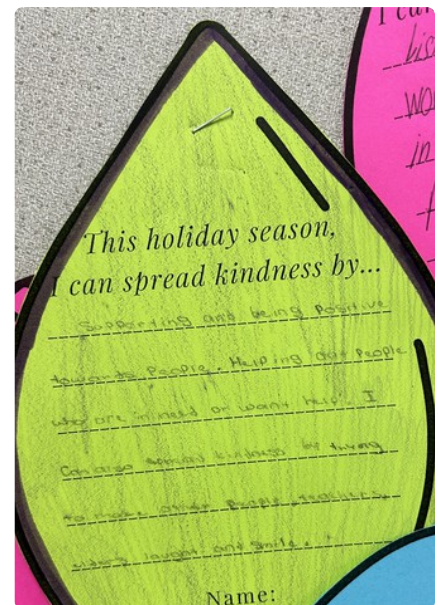 I can
kis
wo
in
This holiday season,
I can spread kindness by...
Supporting and being Positive
towards People. Helping out People
who are in need or want help. I
Can also spread kindness by trying
to make other people, teachers,
laught and smile.
Name: